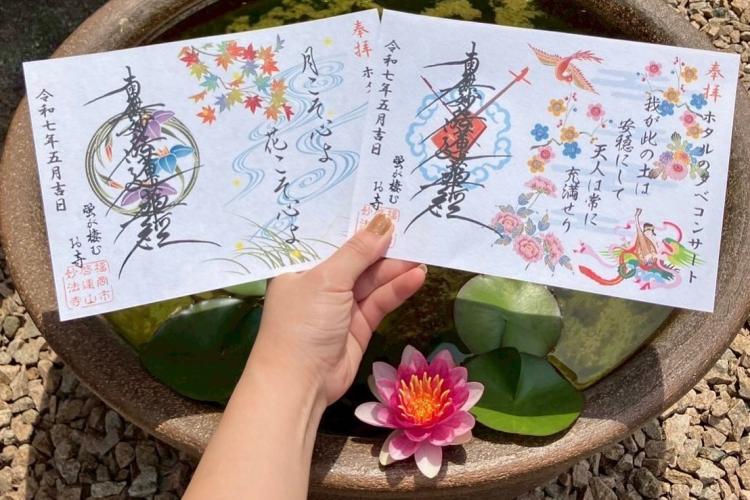 奉拝
ホタ
月こそ心よ
花こそ心よ
南無妙法蓮華経
螢が棲む
お寺
福岡市
妙法寺
令和七年五月吉日
奉拝
ホタルの夕べコンサート
我が此の土は
安穏にして
天人は常に
充満せり
南無妙法蓮華経
螢が棲む
お寺
令和七年五月吉日